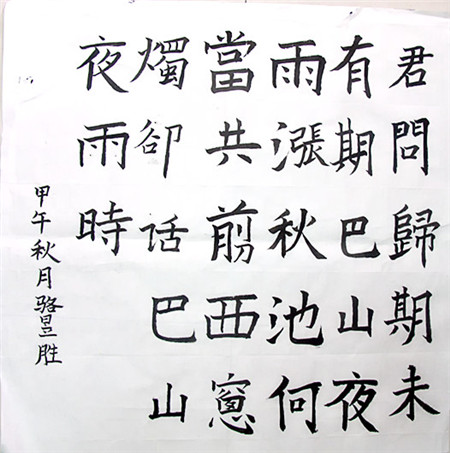 君問歸期未
有期巴山夜
雨漲秋池何
當共剪西窻
燭卻话巴山
夜雨時
甲午秋月骆胜